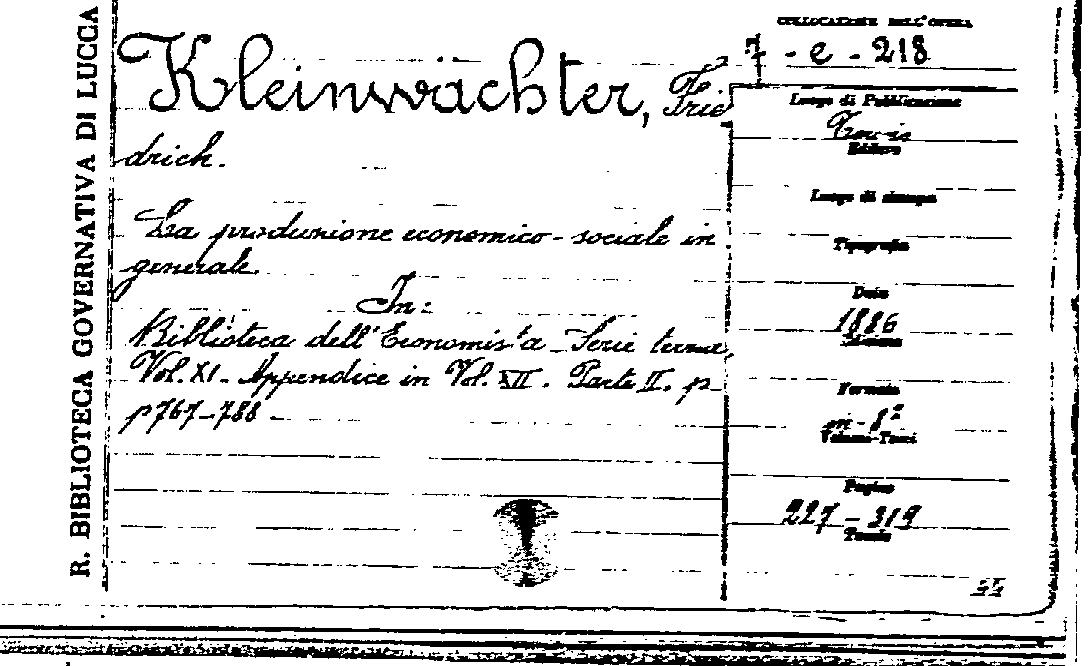 R. BIBLIOTECA GOVERNATIVA DI LUCCA
COLLOCAZIONE DELL'OPERA
7 - e - 218
Kleinwächter, Frie
drich.
La produzione economico-sociale in
generale.
In:
Biblioteca dell'Economista - Serie terza,
Vol. XI - Appendice in Vol. XII. Parte II. p
p 767-788
Luogo di Pubblicazione
Editore
Luogo di stampa
Tipografia
Data
1886
Edizione
Formato
in-8º
Volumi-Tomi
Pagine
227 - 319
Tavole